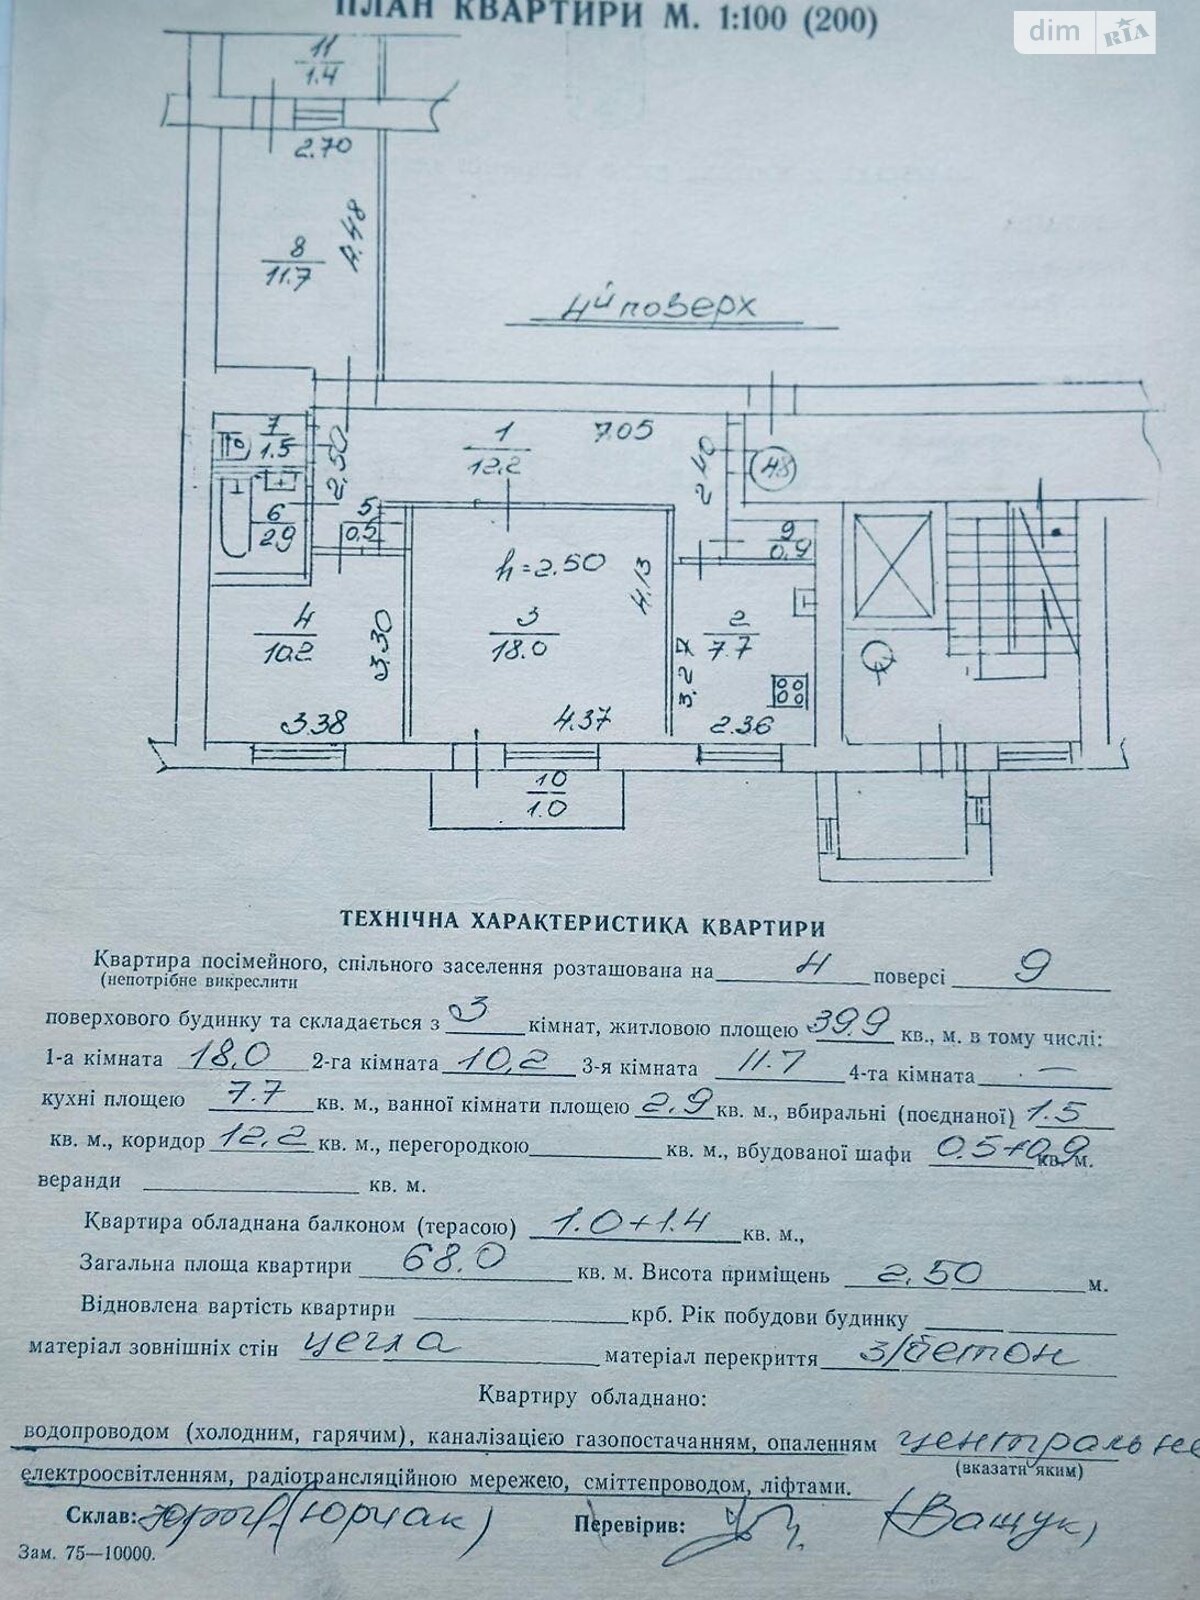 ПЛАН КВАРТИРИ М. 1:100 (200)
dim RIA
11
1.4
2.70
4.48
8
11.7
4й поверх
7
1.5
2.50
1
12.2
7.05
2.40
48
6
2.9
5
0.5
9
0.9
h=2.50
4.13
4
10.2
3.30
3
18.0
2
7.7
3.27
3.38
4.37
2.36
10
1.0
ТЕХНІЧНА ХАРАКТЕРИСТИКА КВАРТИРИ
Квартира посімейного, спільного заселення розташована на 4 поверсі 9
(непотрібне викреслити
поверхового будинку та складається з 3 кімнат, житловою площею 39.9 кв., м. в тому числі:
1-а кімната 18,0 2-га кімната 10,2 3-я кімната 11.7 4-та кімната —
кухні площею 7.7 кв. м., ванної кімнати площею 2,9 кв. м., вбиральні (поєднаної) 1.5
кв. м., коридор 12,2 кв. м., перегородкою кв. м., вбудованої шафи 0.5+0,9 кв. м.
веранди кв. м.
Квартира обладнана балконом (терасою) 1.0+1.4 кв. м.,
Загальна площа квартири 68.0 кв. м. Висота приміщень 2,50 м.
Відновлена вартість квартири крб. Рік побудови будинку
матеріал зовнішніх стін цегла матеріал перекриття з/бетон
Квартиру обладнано:
водопроводом (холодним, гарячим), каналізацією газопостачанням, опаленням центральне
(вказати яким)
електроосвітленням, радіотрансляційною мережею, сміттєпроводом, ліфтами.
Склав: (Юрчак) Перевірив: (Ващук)
Зам. 75—10000.